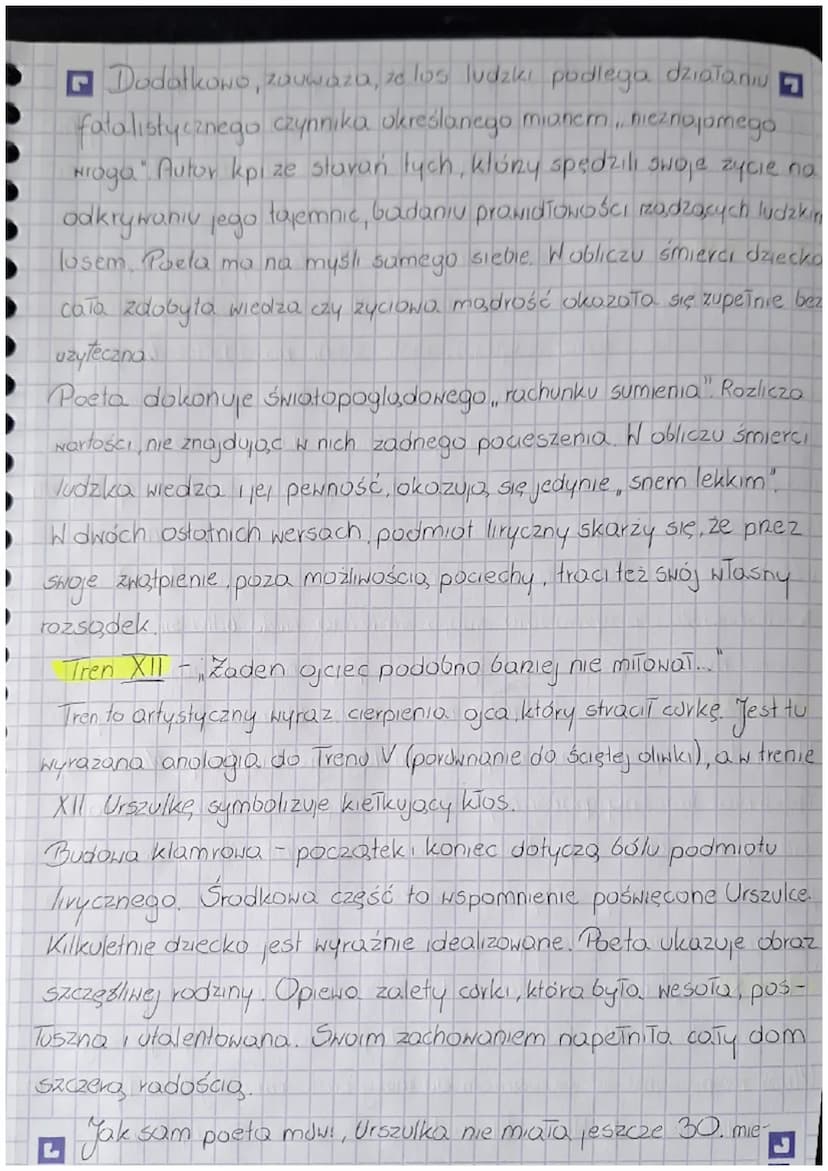 Dodatkowo, zauważa, że los ludzki podlega działaniu
fatalistycznego czynnika określanego mianem „nieznajomego
wroga". Autor kpi ze starań tych, którzy spędzili swoje życie na
odkrywaniu jego tajemnic, badaniu prawidłowości rządzących ludzkim
losem. Poeta ma na myśli samego siebie. W obliczu śmierci dziecka
cała zdobyta wiedza czy życiowa mądrość okazała się zupełnie bez
użyteczna.
Poeta dokonuje światopoglądowego „rachunku sumienia". Rozlicza
wartości, nie znajdując w nich żadnego pocieszenia. W obliczu śmierci
ludzka wiedza i jej pewność, okazują się jedynie „snem lekkim".
W dwóch ostatnich wersach, podmiot liryczny skarży się, że przez
swoje zwątpienie, poza możliwością pociechy, traci też swój własny
rozsądek.
Tren XII - „Żaden ojciec podobno barziej nie miłował..."
Tren to artystyczny wyraz cierpienia ojca, który stracił córkę. Jest tu
wyrażana analogia do Trenu V (porównanie do ściętej oliwki), a w trenie
XII Urszulkę symbolizuje kiełkujący kłos.
Budowa klamrowa - początek i koniec dotyczą bólu podmiotu
lirycznego. Środkowa część to wspomnienie poświęcone Urszulce.
Kilkuletnie dziecko jest wyraźnie idealizowane. Poeta ukazuje obraz
szczęśliwej rodziny. Opiewa zalety córki, która była wesoła, pos-
łuszna i utalentowana. Swoim zachowaniem napełniła cały dom
szczerą radością.
Jak sam poeta mówi, Urszulka nie miała jeszcze 30. mie-